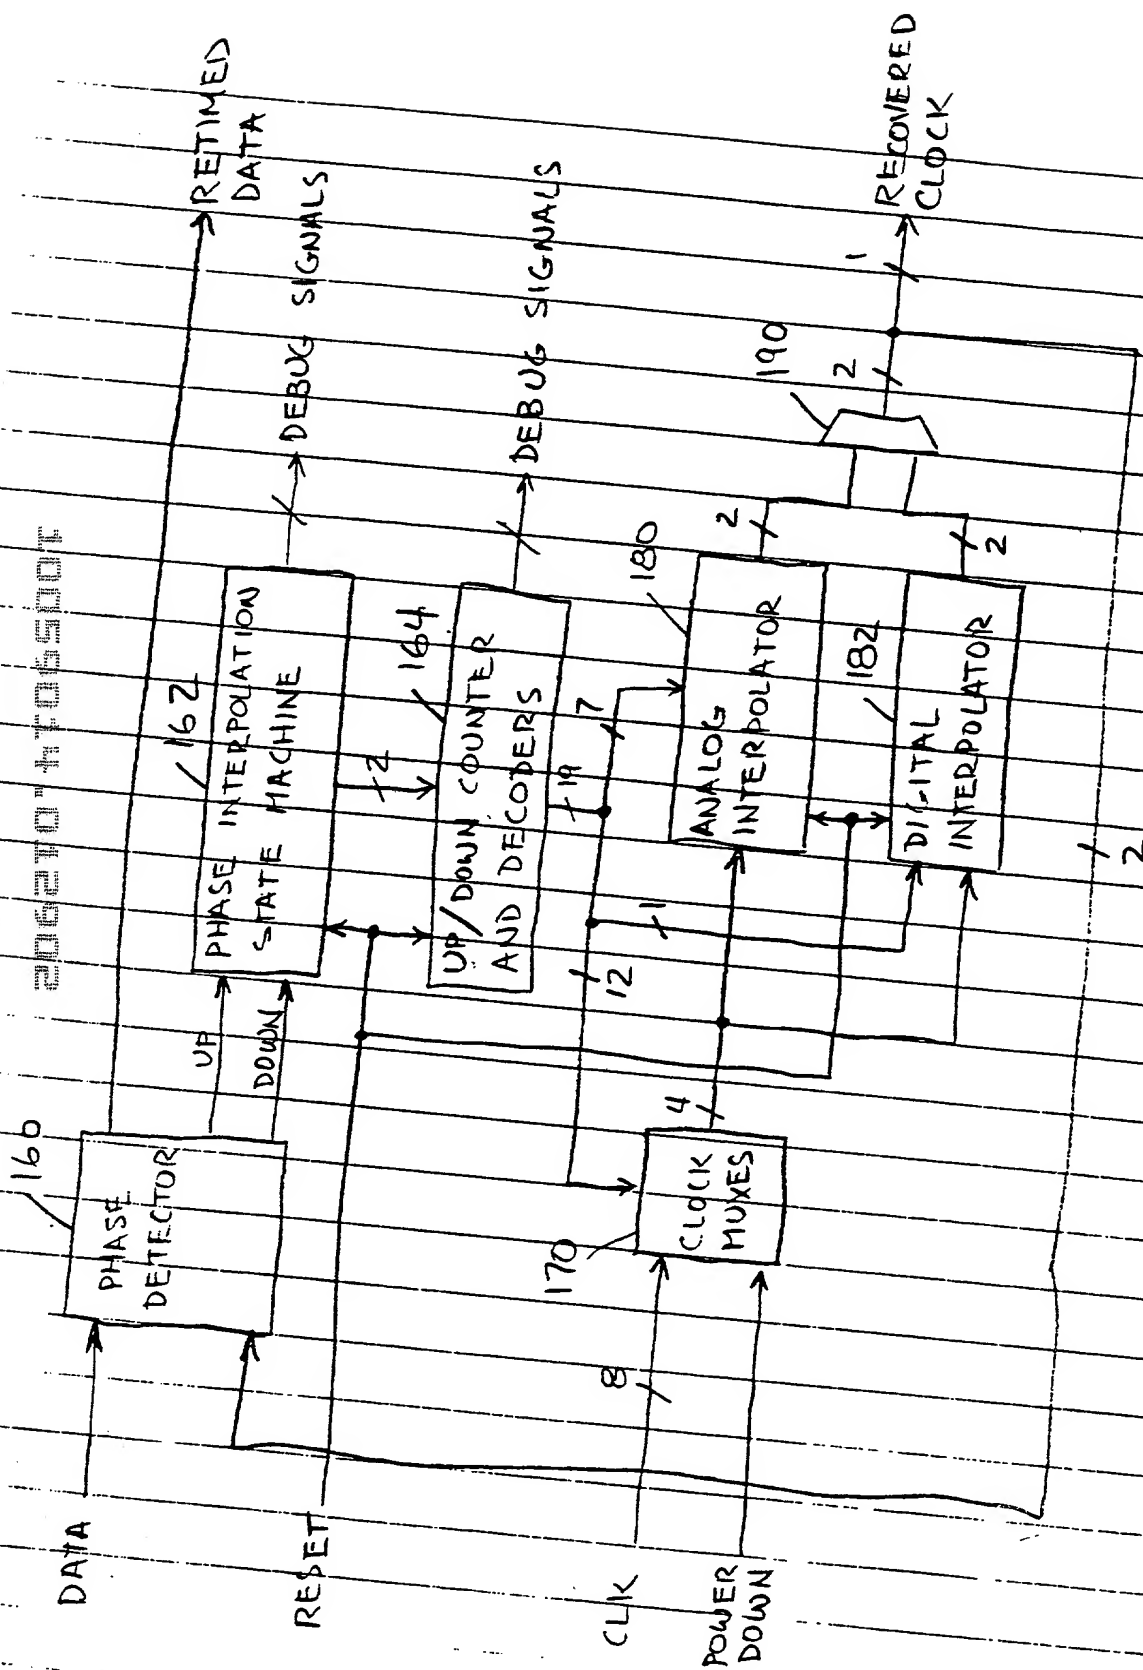 DATA
RESET
CLK
POWER
DOWN
160
PHASE
DETECTOR
UP
DOWN
162
PHASE INTERPOLATION
STATE MACHINE
2
164
UP/DOWN COUNTER
AND DECODERS
19
7
12
1
8
170
CLOCK
MUXES
4
180
ANALOG
INTERPOLATOR
182
DIGITAL
INTERPOLATOR
2
2
190
2
1
2
RETIMED
DATA
DEBUG SIGNALS
DEBUG SIGNALS
RECOVERED
CLOCK